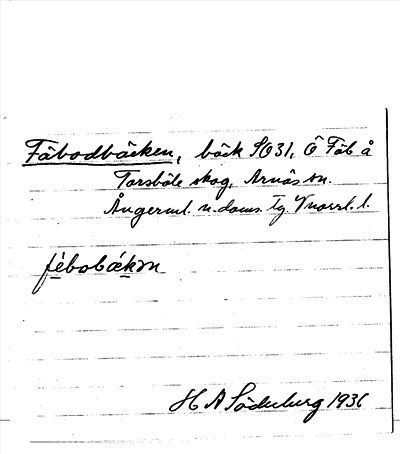 Fäbodbäcken, bäck SO31, Ö Fäb å
Torsböle skog, Arnäs sn.
Ångerml. n. doms. tg. Vnorrl. l.
fèbobǽkɔn
H A Söderberg 1936